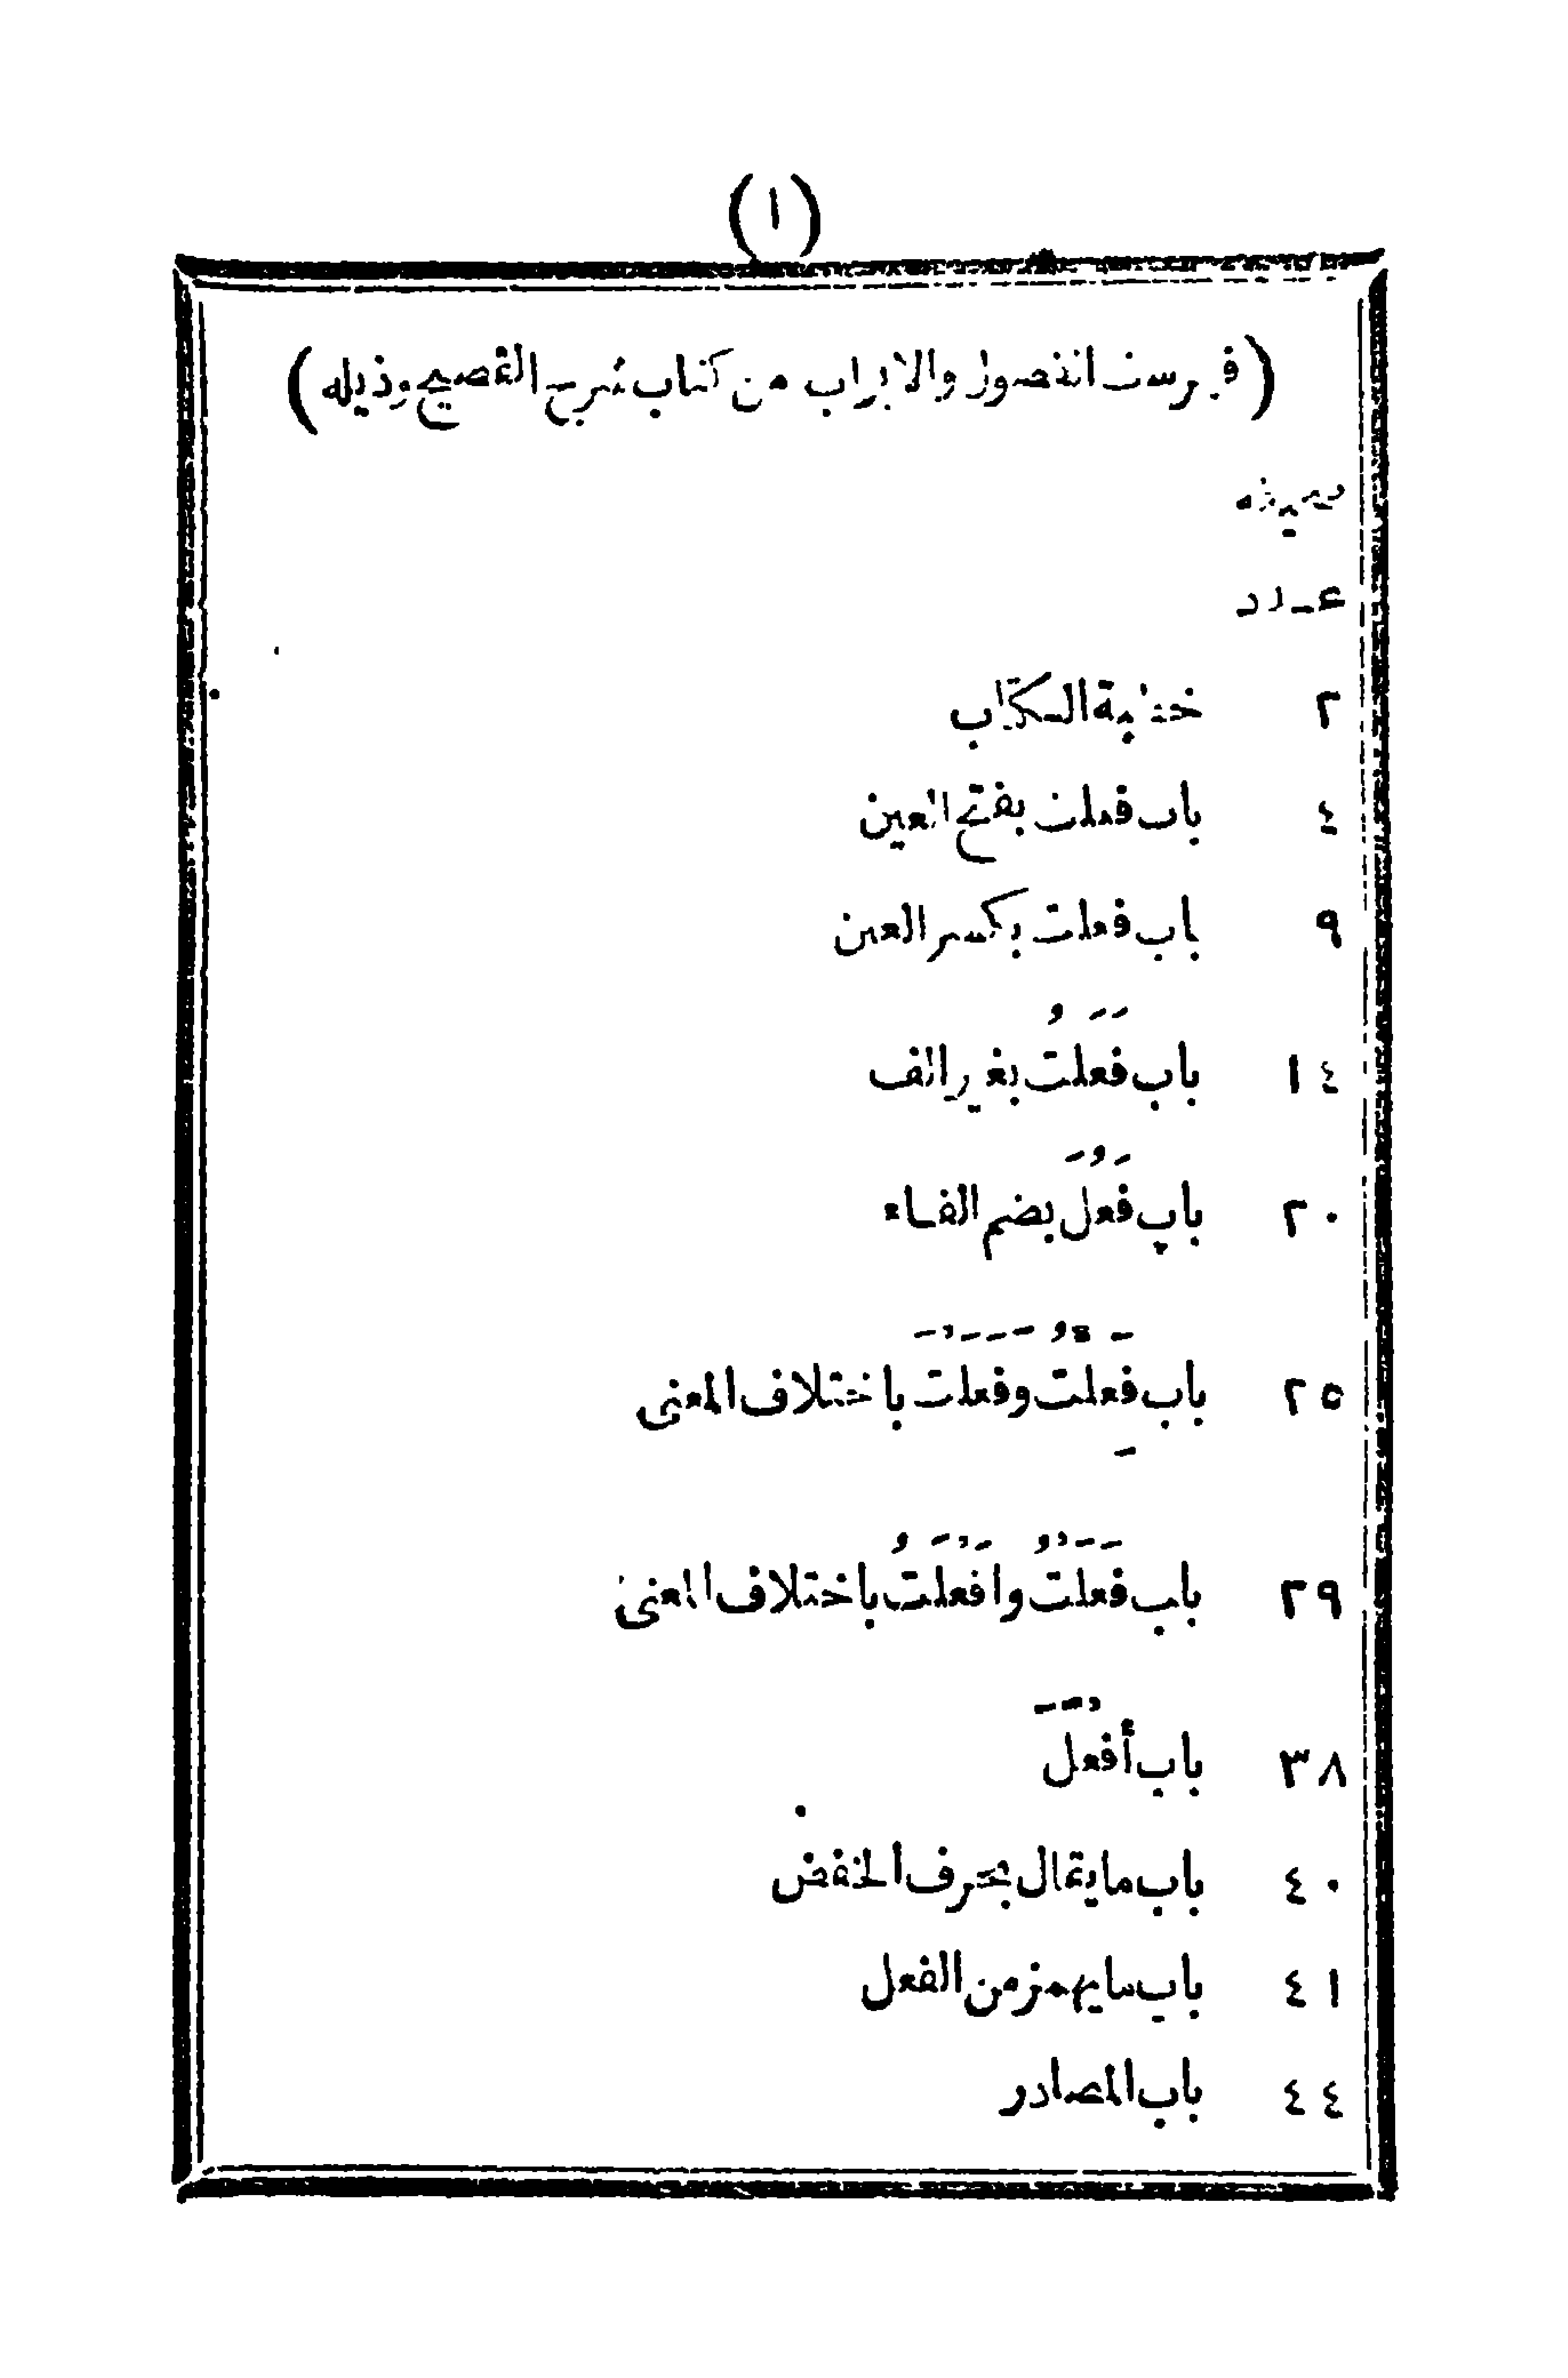 (١)
(فهرست الفصول والابواب من كتاب شرح الفصيح وذيله)
صحيفه
عدد
٢ خطبة الكتاب
٤ باب فعلت بفتح العين
٩ باب فعلت بكسر العين
١٤ باب فَعَلتُ بغير الف
٢٠ باب فَعُلَ بضم الفاء
٢٥ باب فَعِلتُ وفَعَلْتَ باختلاف المعنى
٢٩ باب فَعَلْتُ وافَعْلَتُ باختلاف المعنى
٣٨ باب أفْعَلَ
٤٠ باب ما يقال بحرف الخفض
٤١ باب ما يهمز من الفعل
٤٤ باب المصادر